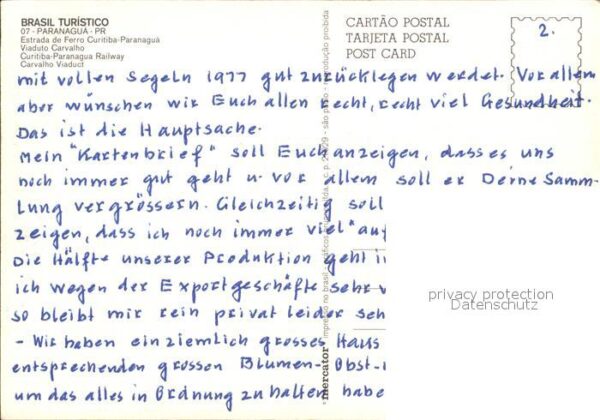 BRASIL TURÍSTICO
07 - PARANAGUÁ - PR
Estrada de Ferro Curitiba-Paranaguá
Viaduto Carvalho
Curitiba-Paranagua Railway
Carvalho Viaduct
CARTÃO POSTAL
TARJETA POSTAL
POST CARD
2.
mit vollen Segeln 1977 gut zurücklegen werdet. Vor allem
aber wünschen wir Euch allen recht, recht viel Gesundheit.
Das ist die Hauptsache.
Mein "Kartenbrief" soll Euch anzeigen, dass es uns
noch immer gut geht u. vor allem soll er Deine Samm-
lung vergrössern. Gleichzeitig soll
zeigen, dass ich noch immer viel "auf
Die Hälfte unserer Produktion geht in
ich wegen der Exportgeschäfte sehr v
so bleibt mir rein privat leider seh
- Wir haben ein ziemlich grosses Haus
entsprechenden grossen Blumen- Obst-
um das alles in Ordnung zu halten habe
mercator
privacy protection
Datenschutz